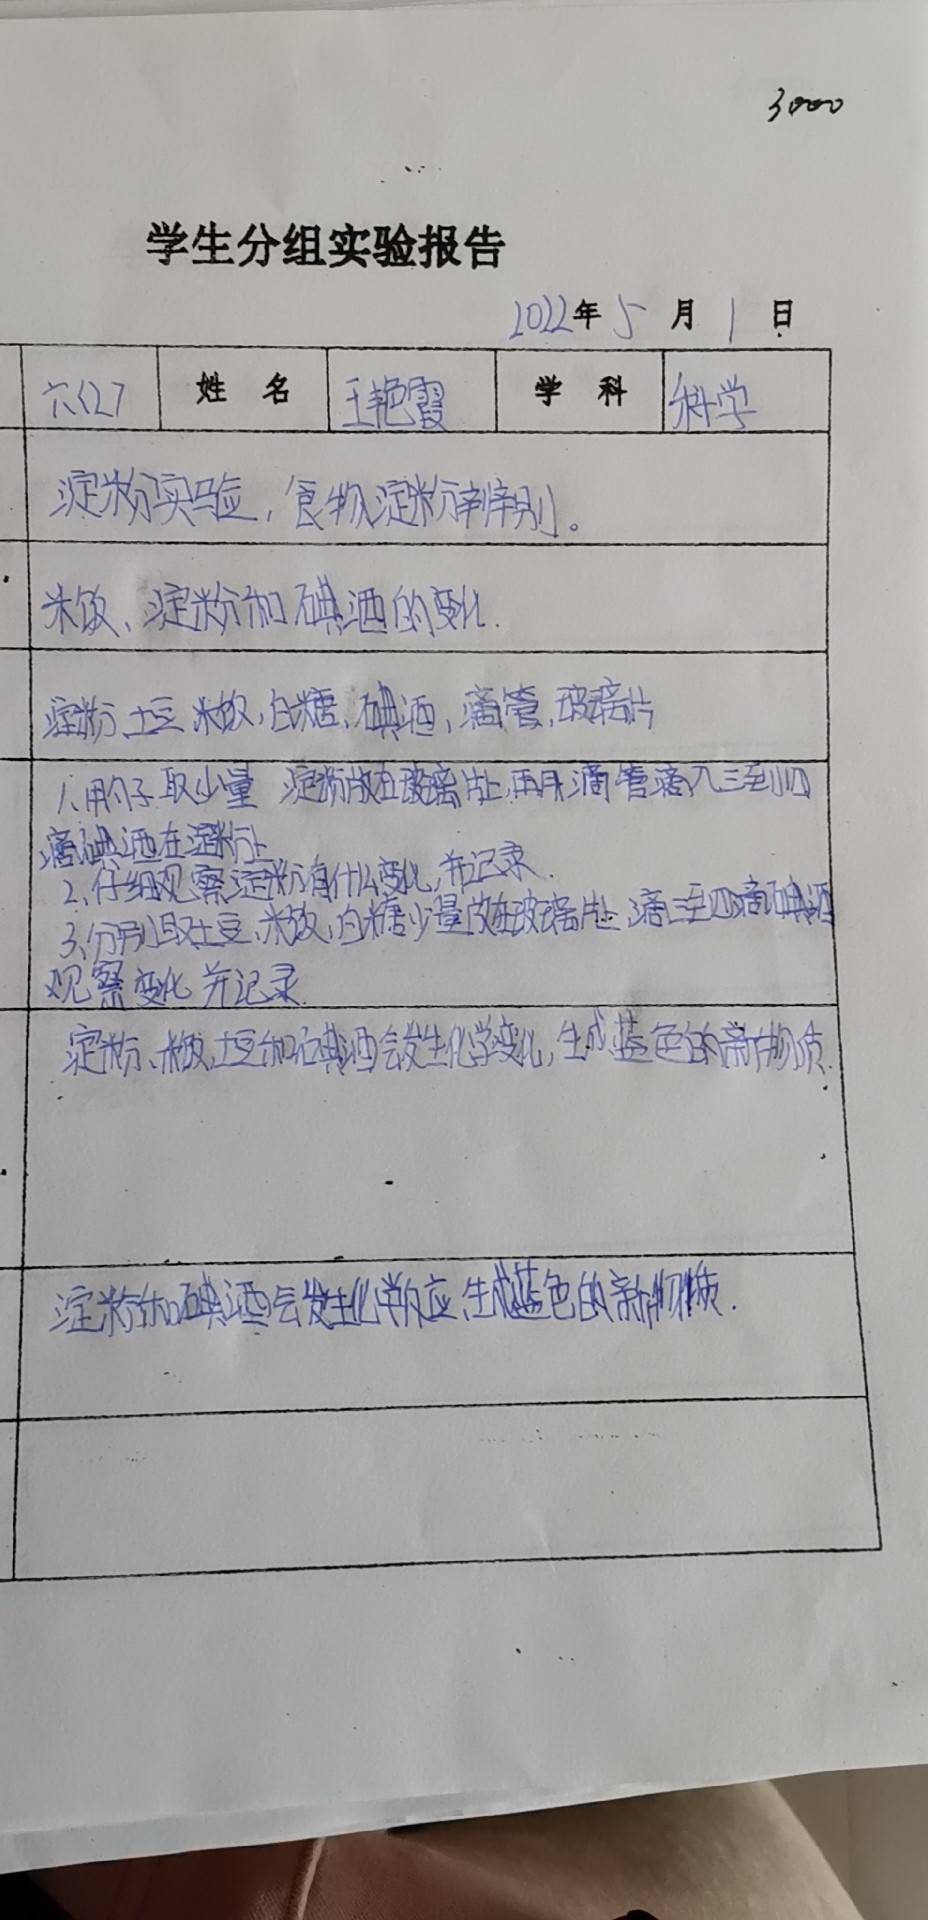 3000
学生分组实验报告
2022年 5 月 1 日
六(2) 姓 名 王艳霞 学 科 科学
淀粉实验，食物淀粉辨别。
米饭、淀粉和碘酒的变化.
淀粉、土豆、米饭,白糖、碘酒,滴管,玻璃片
1、用勺子取少量 淀粉放在玻璃片上,再用滴管滴入三到四
滴碘酒在淀粉上
2、仔细观察淀粉有什么变化,并记录.
3、分别取土豆、米饭,白糖少量放在玻璃片上,滴三至四滴碘酒
观察变化并记录
淀粉、米饭,土豆和碘酒会发生化学变化,生成蓝色的新物质.
淀粉和碘酒会发生化学反应,生成蓝色的新物质.